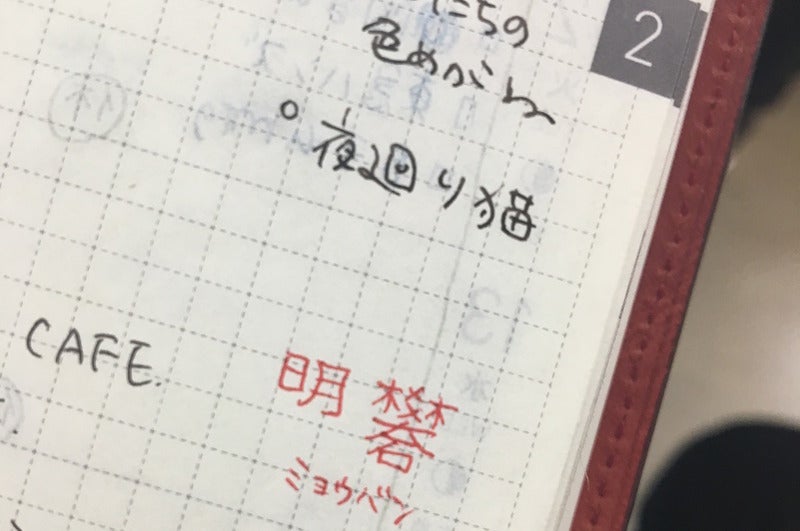 2
たちの
色めがね
○夜廻り猫
CAFE.
明礬
ミョウバン
13